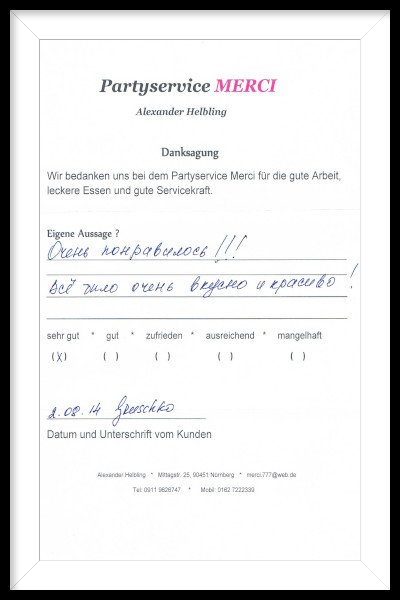 Partyservice MERCI
Alexander Helbling
Danksagung
Wir bedanken uns bei dem Partyservice Merci für die gute Arbeit,
leckere Essen und gute Servicekraft.
Eigene Aussage ?
Очень понравилось!!!
Всё было очень вкусно и красиво!
sehr gut * gut * zufrieden * ausreichend * mangelhaft
(X) ( ) ( ) ( ) ( )
2.08.14
Datum und Unterschrift vom Kunden
Alexander Helbling * Mittagstr. 25, 90451 Nürnberg * merci.777@web.de
Tel: 0911 9626747 * Mobil: 0162 7222339